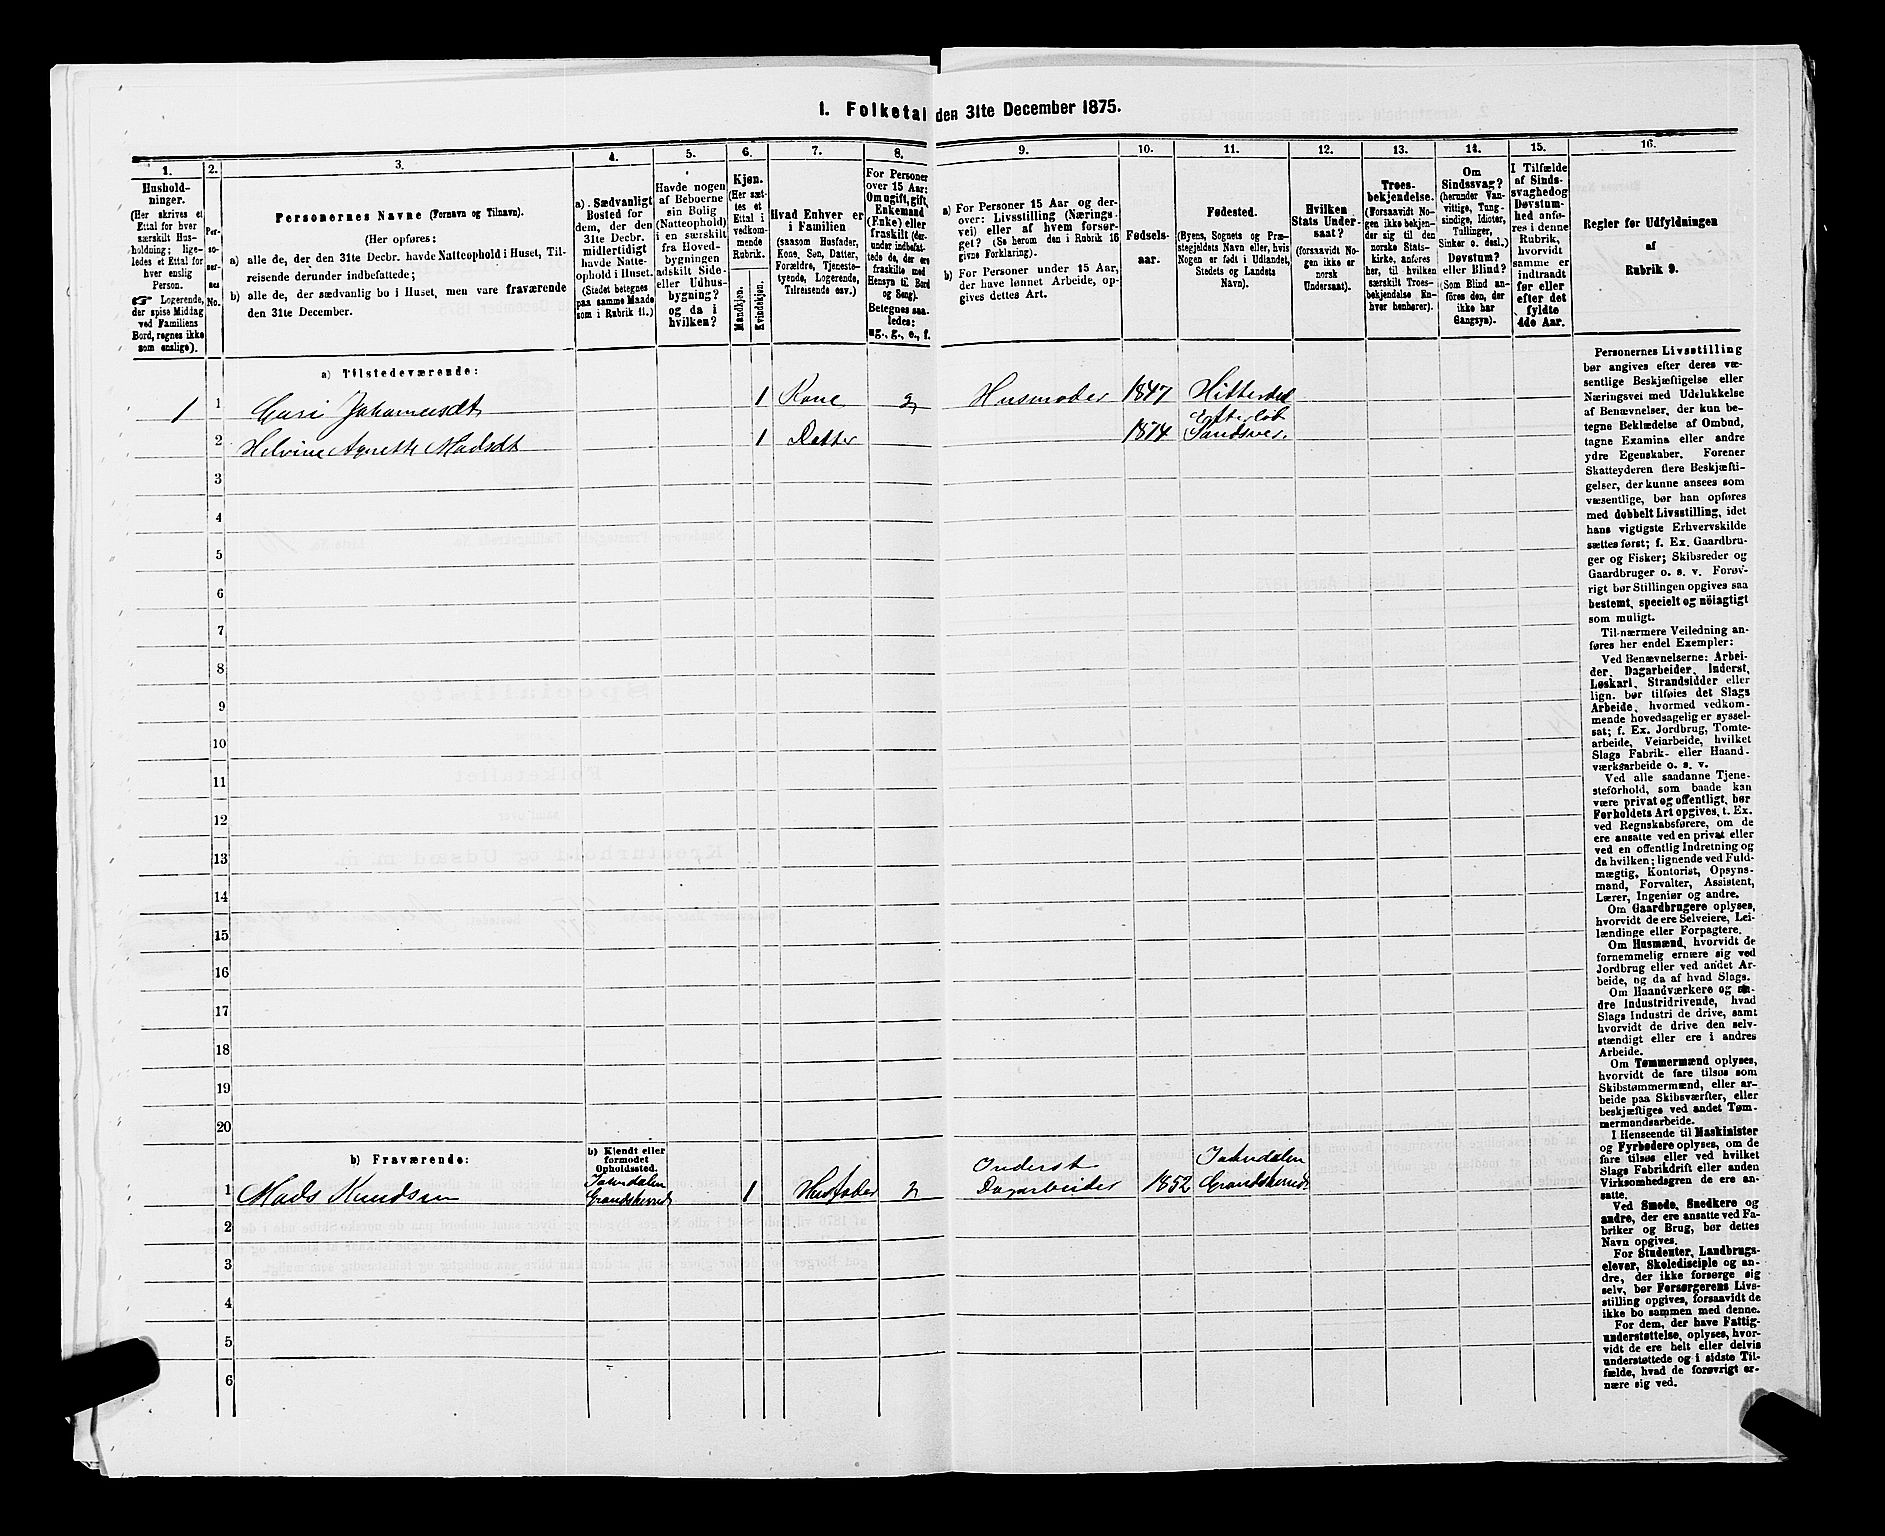 1. Folketal den 31te December 1875.
1.
2.
3.
4.
5.
6.
7.
8.
9.
10.
11.
12.
13.
14.
15.
16.
Hushold-
ninger.
(Her skrives et
Ettal for hver
særskilt Hus-
holdning; lige-
ledes et Ettal for
hver enslig
Person.
☞ Logerende,
der spise Middag
ved Familiens
Bord, regnes ikke
som enslige).
Per-
so-
ner-
nes
No.
Personernes Navne (Fornavn og Tilnavn).
(Her opføres:
a) alle de, der den 31te Decbr. havde Natteophold i Huset, Til-
reisende derunder indbefattede;
b) alle de, der sædvanlig bo i Huset, men vare fraværende
den 31te December.
a). Sædvanligt
Bosted for
dem, der den
31te Decbr.
midlertidigt
havde Natte-
ophold i Huset.
(Stedet betegnes
paa samme Maade
som i Rubrik 11.)
Havde nogen
af Beboerne
sin Bolig
(Natteophold)
i en særskilt
fra Hoved-
bygningen
adskilt Side-
eller Udhus-
bygning?
og da i
hvilken?
Kjøn.
(Her sæt-
tes et
Ettal i
vedkom-
mende
Rubrik.
Mandkjøn.
Kvindekjøn.
Hvad Enhver er
i Familien
(saasom Husfader,
Kone, Søn, Datter,
Forældre, Tjeneste-
tyende, Logerende,
Tilreisende osv.)
For Personer
over 15 Aar:
Om ugift, gift,
Enkemand
(Enke) eller
fraskilt (der-
under indbefat-
tede de, der ere
fraskilte med
Hensyn til Bord
og Seng).
Betegnes saa-
ledes:
ug., g., e., f.
a) For Personer 15 Aar og der-
over: Livsstilling (Nærings-
vei) eller af hvem forsør-
get? (Se herom den i Rubrik 16
givne Forklaring).
b) For Personer under 15 Aar,
der have lønnet Arbeide, op-
gives dettes Art.
Fødsels-
aar.
Fødested.
(Byens, Sognets og Præ-
stegjeldets Navn eller, hvis
Nogen er født i Udlandet,
Stedets og Landets
Navn).
Hvilken
Stats Under-
saat?
(forsaavidt No-
gen ikke er
norsk
Undersaat).
Troes-
bekjendelse.
(Forsaavidt No-
gen ikke beken-
der sig til den
norske Stats-
kirke, anføres
her, til hvilken
særskilt Troes-
bekjendelse En-
hver henhører).
Om
Sindssvag?
(herunder Van-
vittige, Tung-
sindige, Idioter,
Tullinger,
Sinker o. desl.)
Døvstum?
eller Blind?
(Som Blind an-
føres den, der
ikke har
Gangsyn).
I Tilfælde
af Sinds-
svaghedog
Døvstum-
hed anfø-
res i denne
Rubrik,
hvorvidt
samme er
indtraadt
før eller
efter det
fyldte
4de Aar.
Regler for Udfyldningen
af
Rubrik 9.
a) Tilstedeværende:
1 1 Cari Johannesdt 1 Kone g Husmoder 1847 Hitterdal
2 Helvine Agnethe Madsdt 1 Datter 1874 Efteløt
Sandsver.
3
4
5
6
7
8
9
10
11
12
13
14
15
16
17
18
19
20
b) Fraværende:
b) Kjendt eller
formodet
Opholdssted.
1 Mads Knudsen Jondalen
Grandsherred 1 Husfader g Inderst
Dagarbeider 1852 Jondalen
Grandsherred
2
3
4
5
6
Personernes Livsstilling
bør angives efter deres væ-
sentlige Beskjæftigelse eller
Næringsvei med Udelukkelse
af Benævnelser, der kun be-
tegne Beklædelse af Ombud,
tagne Examina eller andre
ydre Egenskaber. Forener
Skatteyderen flere Beskjæfti-
gelser, der kunne ansees som
væsentlige, bør han opføres
med dobbelt Livsstilling, idet
hans vigtigste Erhvervskilde
sættes først; f. Ex. Gaardbru-
ger og Fisker; Skibsreder og
Gaardbruger o. s. v. Forøv-
rigt bør Stillingen opgives saa
bestemt, specielt og nöiagtigt
som muligt.
Til nærmere Veiledning an-
føres her endel Exempler:
Ved Benævnelserne: Arbei-
der, Dagarbeider, Inderst,
Løskarl, Strandsidder eller
lign. bør tilføies det Slags
Arbeide, hvormed vedkom-
mende hovedsagelig er syssel-
sat; f. Ex. Jordbrug, Tomte-
arbeide, Veiarbeide, hvilket
Slags Fabrik- eller Haand-
værksarbeide o. s. v.
Ved alle saadanne Tjene-
steforhold, som baade kan
være privat og offentligt, bør
Forholdets Art opgives, t. Ex.
ved Regnskabsførere, om de
ere ansatte ved en privat eller
ved en offentlig Indretning og
da hvilken; lignende ved Fuld-
mægtig, Kontorist, Opsyns-
mand, Forvalter, Assistent,
Lærer, Ingeniør og andre.
Om Gaardbrugere oplyses,
hvorvidt de ere Selveiere, Lei-
lændinge eller Forpagtere.
Om Husmænd, hvorvidt de
fornemmelig ernære sig ved
Jordbrug eller ved andet Ar-
beide, og da af hvad Slags.
Om Haandværkere og an-
dre Industridrivende, hvad
Slags Industri de drive, samt
hvorvidt de drive den selv-
stændigt eller ere i andres
Arbeide.
Om Tømmermænd oplyses,
hvorvidt de fare tilsøs som
Skibstømmermænd, eller ar-
beide paa Skibsværfter, eller
beskjæftiges ved andet Tøm-
mermandsarbeide.
I Henseende til Maskinister
og Fyrbødere oplyses, om de
fare tilsøs eller ved hvilket
Slags Fabrikdrift eller anden
Virksomhedsgren de ere an-
satte.
Ved Smede, Snedkere og
andre, der ere ansatte ved Fa-
briker og Brug, bør dettes
Navn opgives.
For Studenter, Landbrugs-
elever, Skoledisciple og an-
dre, der ikke forsørge sig
selv, bør Forsørgerens Livs-
stilling opgives, forsaavidt de
ikke bo sammen med denne.
For dem, der have Fattig-
understøttelse, oplyses, hvor-
vidt de ere helt eller delvis
understøttede og i sidste Til-
fælde, hvad de forøvrigt er-
nære sig ved.